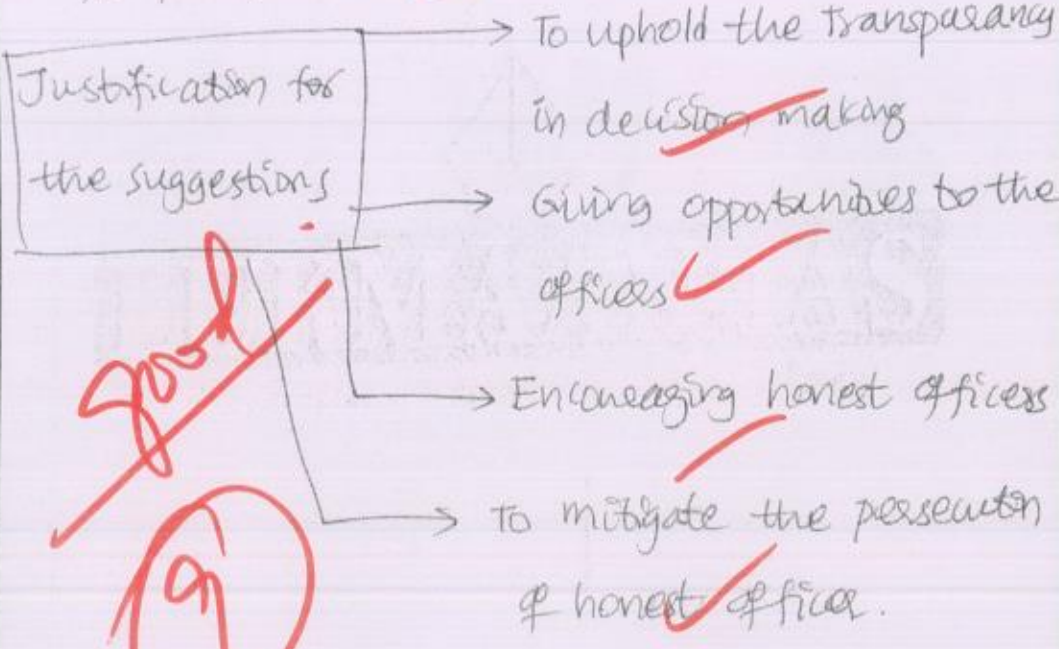 Justification for
the suggestions
→ To uphold the Transparancy
in decision making
→ Giving opportunities to the
officers
→ Encoueaging honest officers
→ To mitigate the persecution
of honest officer.
good
9